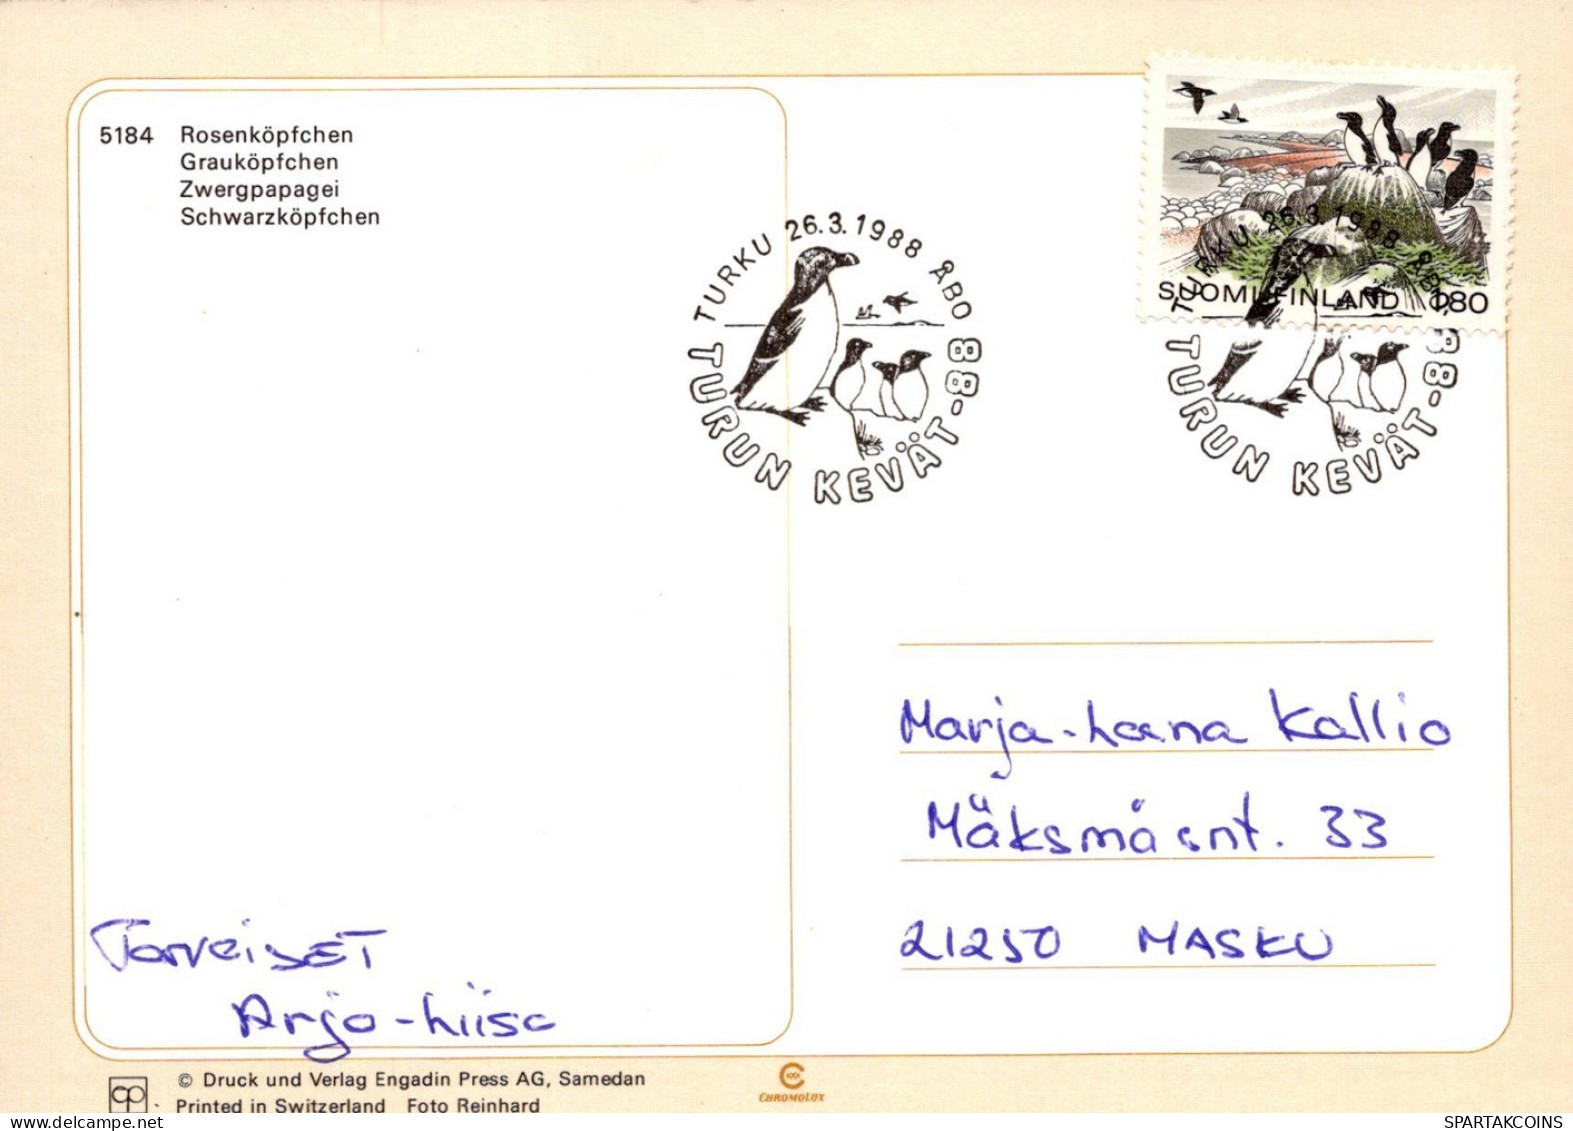 5184 Rosenköpfchen
Grauköpfchen
Zwergpapagei
Schwarzköpfchen
TURKU 26.3.1988 ÅBO
TURUN KEVÄT-88
SUOMI FINLAND 1,80
TURKU 26.3.1988 ÅBO
TURUN KEVÄT-88
Marja-Leena Kallio
Mäksmäent. 33
21250 MASKU
Terveiset
Arja-Liisa
© Druck und Verlag Engadin Press AG, Samedan
Printed in Switzerland Foto Reinhard
CHROMOLUX
SPARTAKCOINS